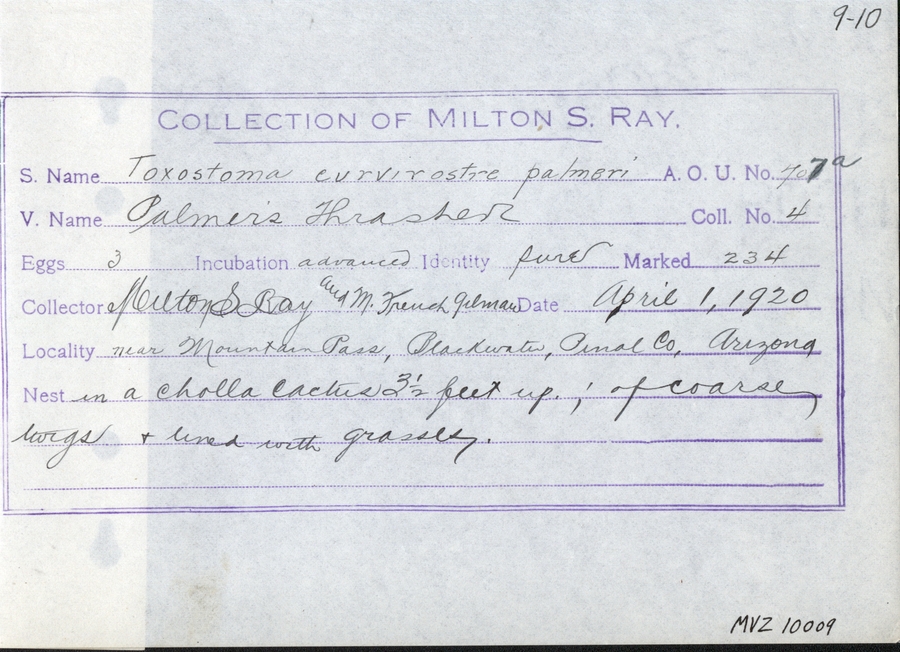 9-10
COLLECTION OF MILTON S. RAY.
S. Name Toxostoma curvirostre palmeri A. O. U. No. 707a
V. Name Palmer's Thrasher Coll. No. 4
Eggs 3 Incubation advanced Identity sure Marked 234
Collector Milton S Ray and M. French Gilman Date April 1, 1920
Locality near Mountain Pass, Blackwater, Pinal Co, Arizona
Nest in a cholla cactus 3½ feet up. ; of coarse
twigs + lined with grasses.
MVZ 10009